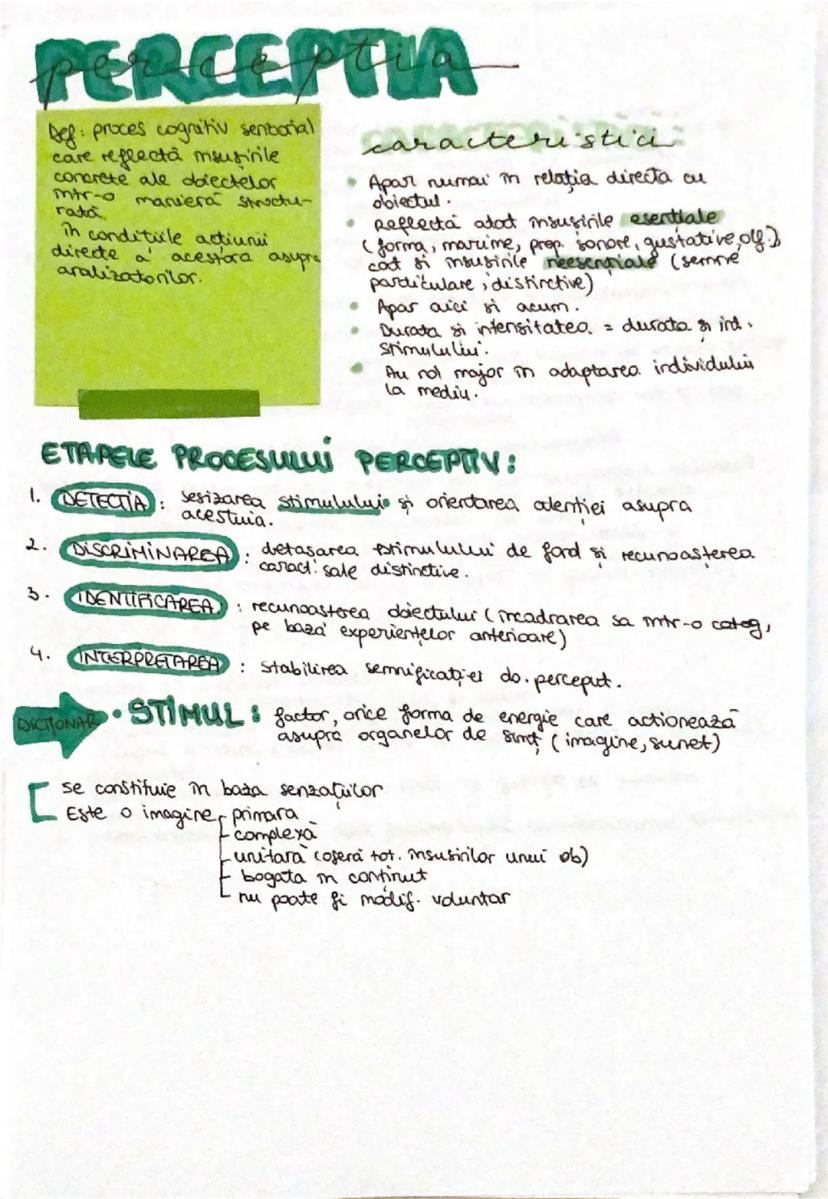 PERCEPTIA
perceptia
Def: proces cognitiv senzorial
care reflectă însușirile
concrete ale obiectelor
într-o manieră structu-
rată.
în condițiile acțiunii
directe a acestora asupra
analizatorilor.
caracteristici
• Apar numai în relația directa cu
obiectul.
• Reflectă atât însușirile esențiale
(forma, marime, prop. sonore, gustative, olf.)
cât și însușirile neesențiale (semne
particulare, distinctive)
• Apar aici și acum.
• Durata si intensitatea = durata și int.
stimulului.
• Au rol major în adaptarea individului
la mediu.
ETAPELE PROCESULUI PERCEPTIV:
1. DETECTIA : sesizarea stimulului și orientarea atenției asupra
acestuia.
2. DISCRIMINAREA : detasarea stimulului de fond și recunoasterea
caract. sale distinctive.
3. IDENTIFICAREA : recunoasterea obiectului (încadrarea sa într-o categ,
pe baza experiențelor anterioare)
4. INTERPRETAREA : stabilirea semnificației ob. perceput.
DICȚIONAR • STIMUL: factor, orice forma de energie care actionează
asupra organelor de simț (imagine, sunet)
se constituie în baza senzațiilor
Este o imagine primara
complexă
unitară (oferă tot. însusirilor unui ob)
bogata în conținut
nu poate fi modif. voluntar